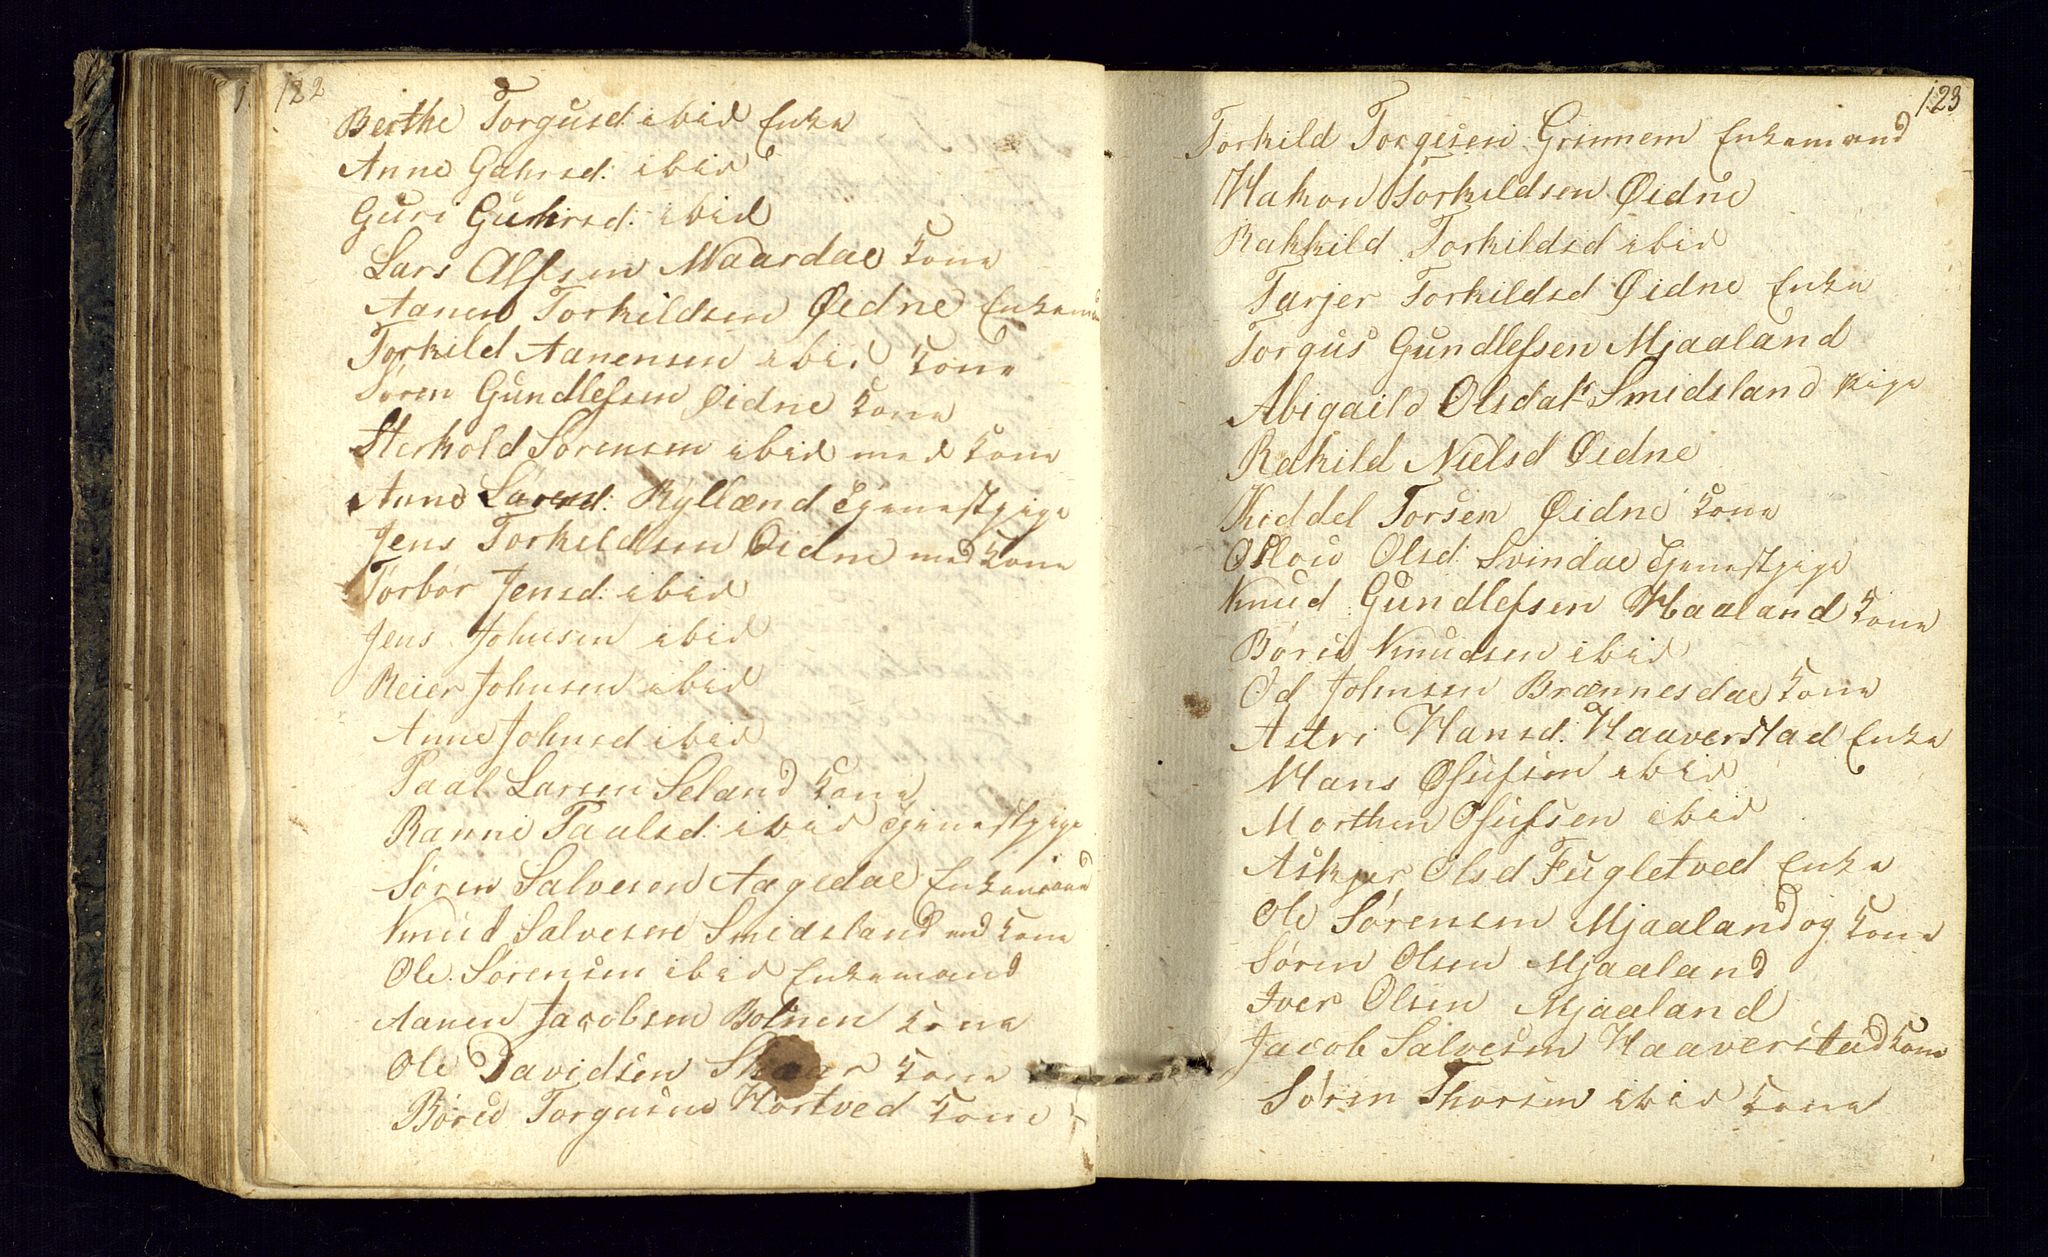 122
Berthe Torgusd ibid Enke
Anne Gahrsd: ibid
Guri Guhrsd: ibid
Lars Alfsen Maardal Kone
Aanen Torkildsen Øidne Enkeman
Torkild Aanensen ibid Kone
Søren Gundlefsen Øidne Kone
Sterkold Sørensen ibid med Kone
Anne Larsd: Rylland Tjenestpige
Jens Torkildsen Øidne med Kone
Torbor Jensd: ibid
Jens Johnsen ibid
Reier Johnsen ibid
Anne Johnsd ibid
Paal Larsen Seland Kone
Ranni Paalsd: ibid Tjenestpige
Søren Salvesen Aagedal Enkemand
Knud Salvesen Smidsland med Kone
Ole Sørensen ibid Enkemand
Aanen Jacobsen Kone
Ole Davidsen Skaar Kone
Børe Torgusen Hortved Kone
123
Torkild Torgesen Grinnem Enkemand
Hakon Torkildsen Øidne
Rakkild Torkildsd ibid
Tarjer Torkildsd Øidne Enke
Torgus Gundlefsen Mjaaland
Abigaild Olsdatr Smidsland Pige
Rakild Nielsd Øidne
Kiddel Torsen Øidne Kone
Olsd: Svindal Tjenestpige
Knud Gundlefsen Haaland Kone
Børe Knudsen ibid
Od Johnsen Brænnesdal Kone
Astri Hansd: Haaverstad Enke
Hans Osufsen ibid
Morthen Osufsen ibid
Askjer Olsd Fugletved Enke
Ole Sørensen Mjaaland og Kone
Søren Olsen Mjaaland
Iver Olsen Mjaaland
Jacob Salvesen Haaverstad Kone
Søren Thorsen ibid Kone